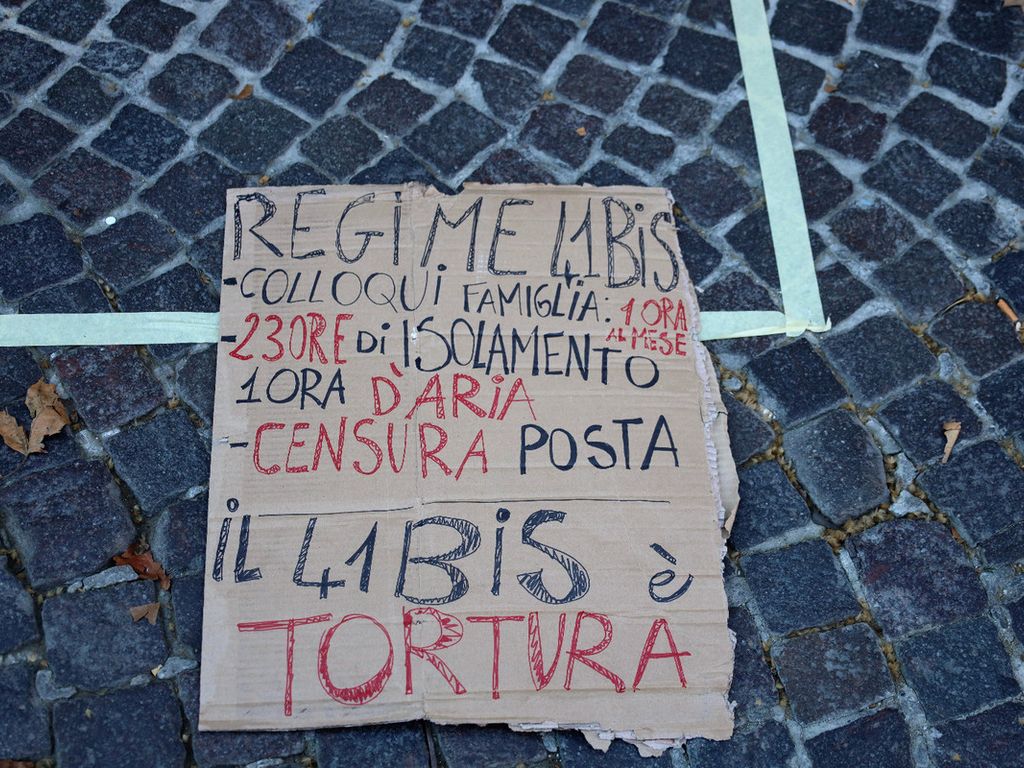 REGIME 41BiS
-COLLOQUI FAMIGLIA: 1 ORA AL MESE
-23 ORE Di ISOLAMENTO
1 ORA D'ARIA
-CENSURA POSTA
iL 41BiS è
TORTURA